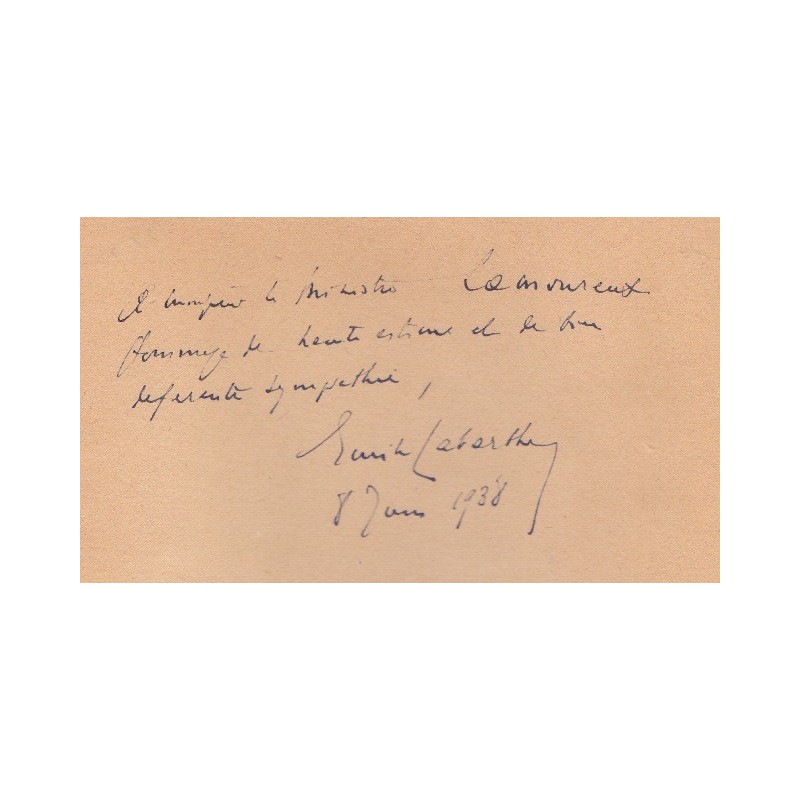 A monsieur le Ministre Lamoureux
Hommage de haute estime et de bien
deferente sympathie,
Emile Labarthe
8 Juin 1938